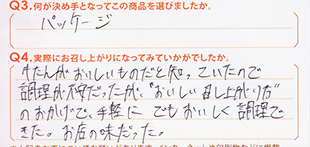 Q3.何が決め手となってこの商品を選びましたか。
パッケージ
Q4.実際にお召し上がりになってみていかがでしたか。
牛たんがおいしいものだと知っていたので
調理が不安だったが、"おいしい召し上がり方"
のおかげで、手軽に でもおいしく調理で
きた。お店の味だった。